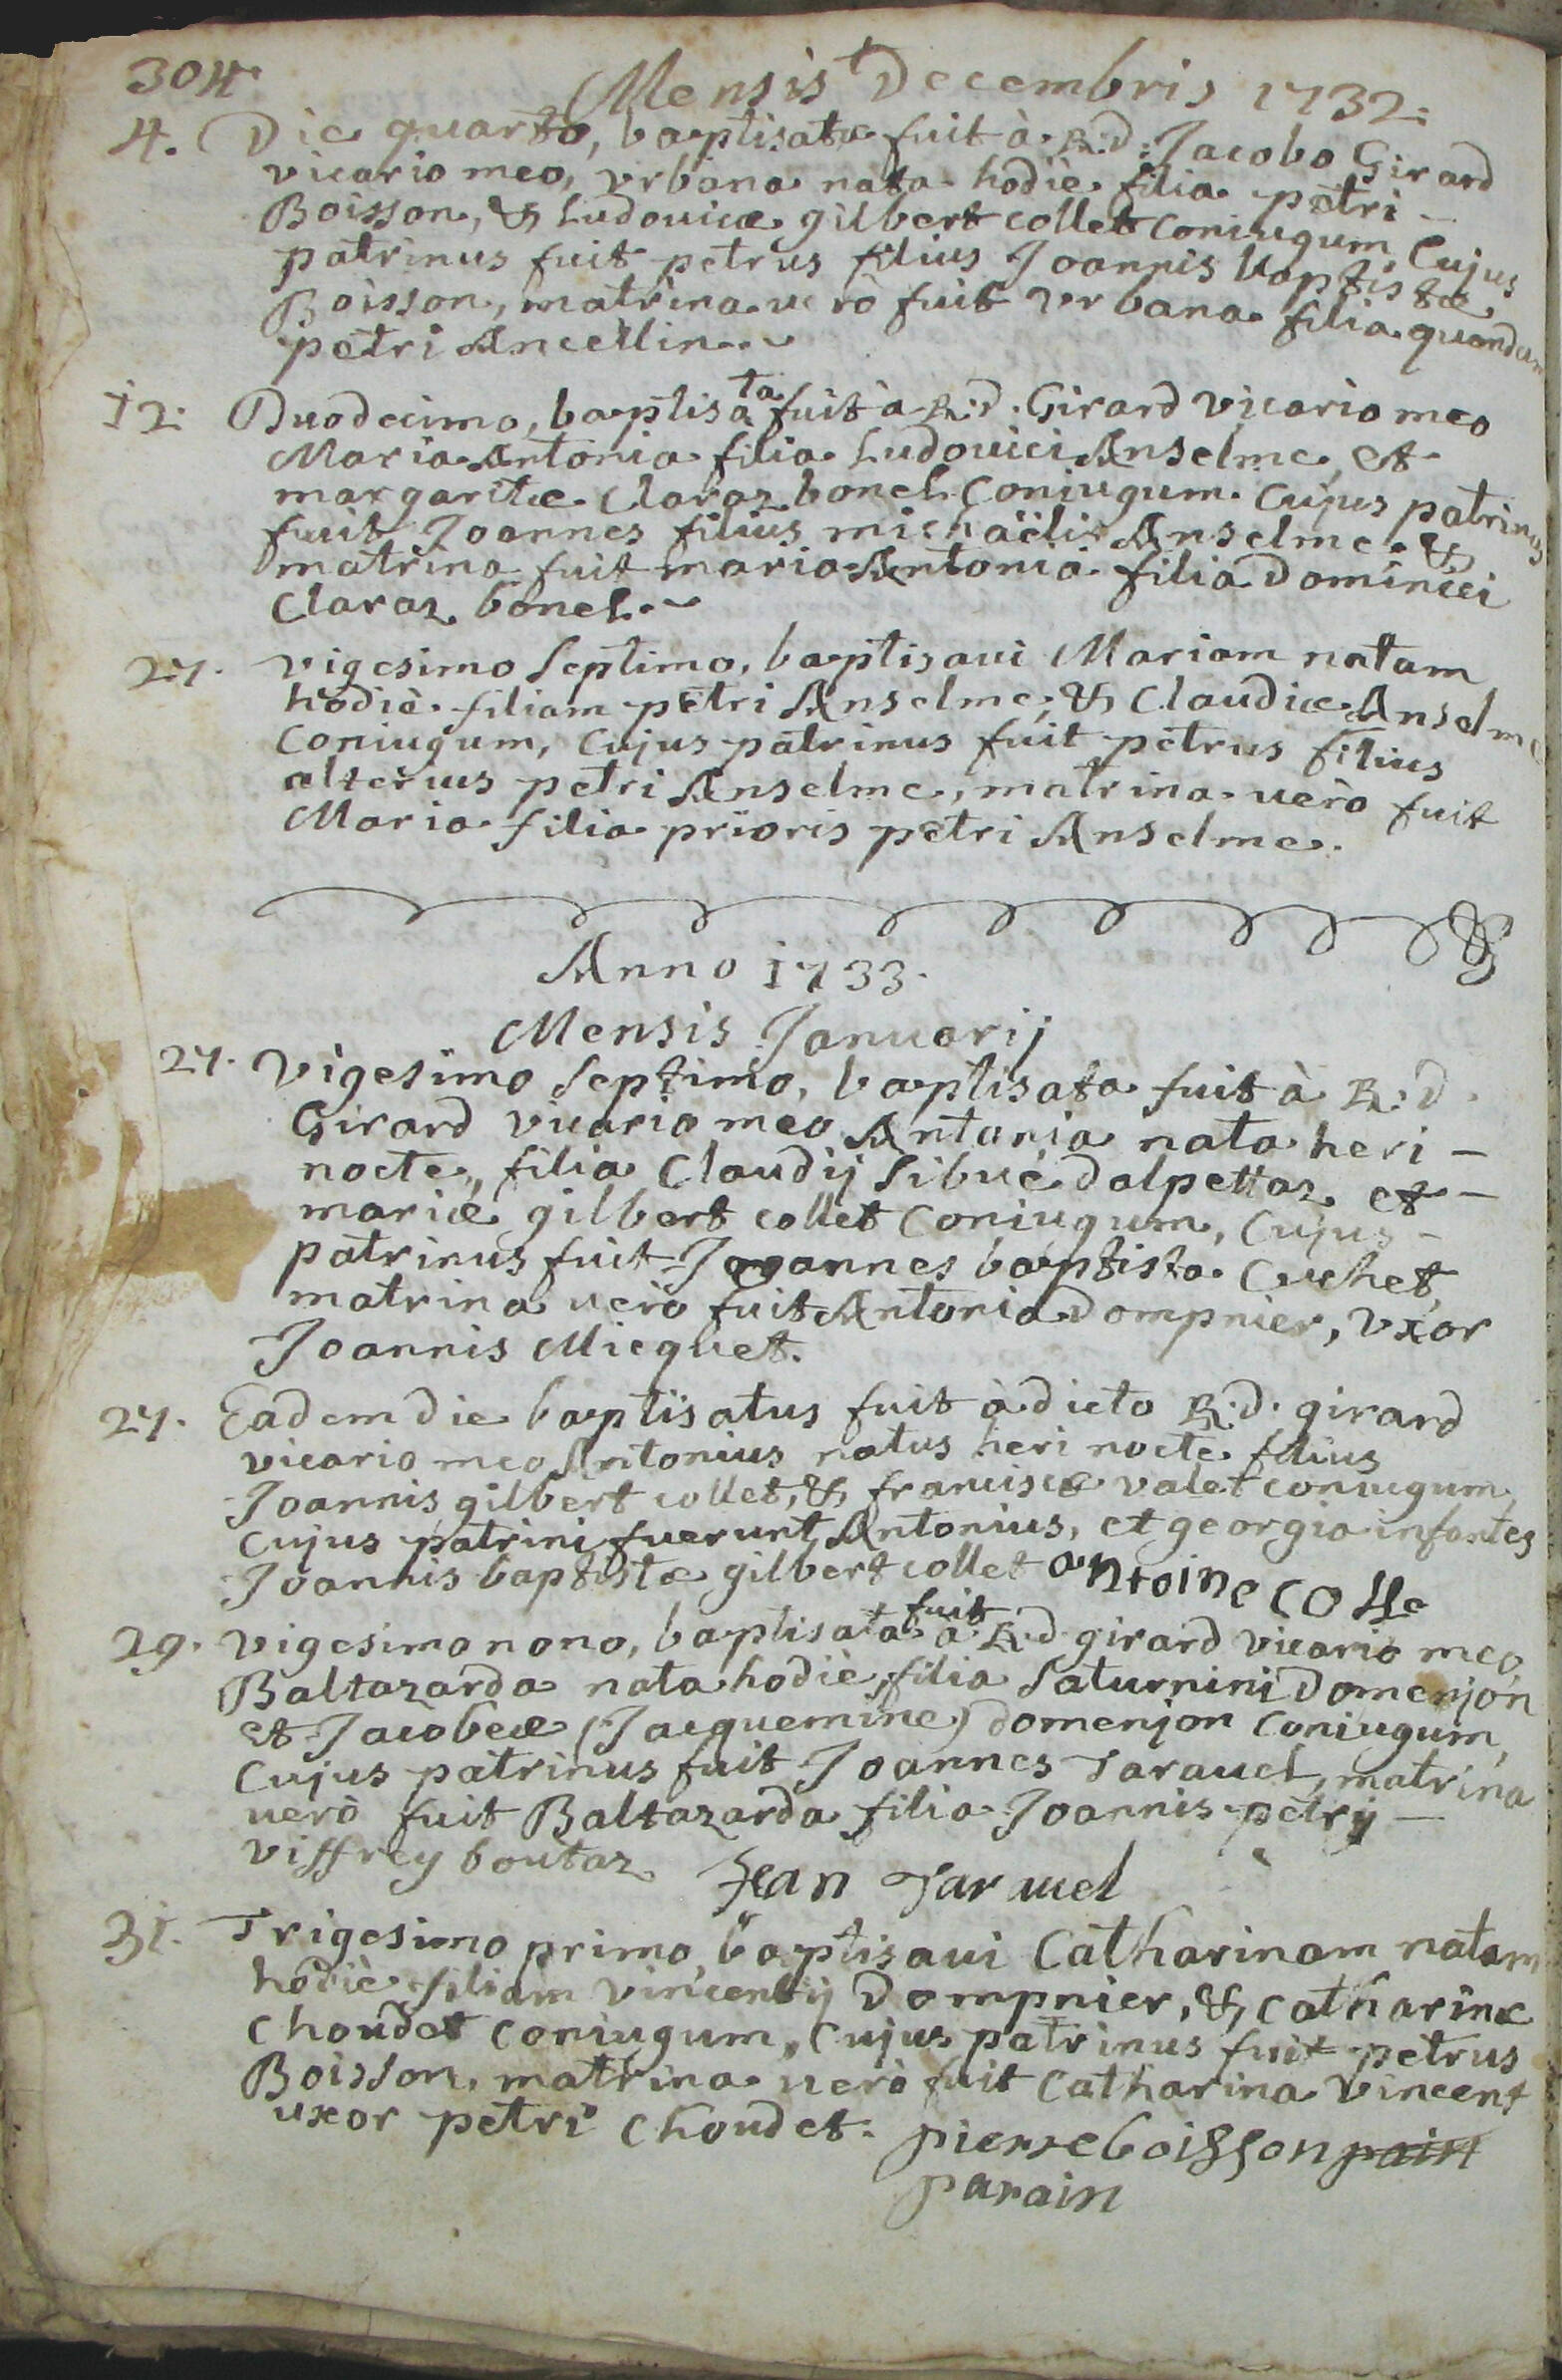 304
Mensis Decembris 1732.
4. Die quarto, baptisata fuit à R: d: Jacobo Girard
vicario meo, Vrbana nata hodiè filia petri -
Boisson, & Ludouicæ gilbert collet Coniugum, Cujus
patrinus fuit petrus filius Joannis baptistæ
Boisson, matrina uerò fuit Vrbana filia quondam
petri Ancellin.
12. Duodecimo, baptisata fuit à R: d. Girard vicario meo
Maria Antonia filia Ludouici Anselme, et
margaritæ Claraz bonel Coniugum. Cujus patrinus
fuit Joannes filius michaëlis Anselme. &
matrina fuit maria Antonia filia Dominici
Claraz bonel.
27. vigesimo septimo, baptisaui Mariam natam
hodiè filiam petri Anselme, & Claudiæ Anselme
Coniugum, Cujus patrinus fuit petrus filius
alterius petri Anselme, matrina uerò fuit
Maria filia prioris petri Anselme.
Anno 1733.
Mensis Januarij
27. Vigesimo septimo, baptisata fuit à R: d.
Girard vicario meo Antonia nata heri -
nocte, filia Claudij Sibué dalpettaz et -
mariæ gilbert collet Coniugum, Cujus -
patrinus fuit Joannes baptista Cuchet,
matrina uerò fuit Antonia Dompnier, Vxor
Joannis Micquet.
27. Eadem die baptisatus fuit à dicto R: d. girard
vicario meo Antonius natus heri nocte filius
Joannis gilbert collet, & franciscæ valet coniugum,
Cujus patrini fuerunt Antonius, et georgia infantes
Joannis baptistæ gilbert collet antoine colle
29. vigesimo nono, baptisata fuit à R: d girard vicario meo
Baltazarda nata hodiè, filia Saturnini Domenjon
et Jacobeæ (Jacquemine) domenjon Coniugum,
Cujus patrinus fuit Joannes Tarauel, matrina
uerò fuit Baltazarda filia Joannis petrij -
Viffrey boutaz Jean Tarauel
31. Trigesimo primo, baptisaui Catharinam natam
hodiè filiam vincentij Dompnier, & catharinæ
Choudet coniugum, Cujus patrinus fuit petrus
Boisson, matrina uerò fuit Catharina Vincent
uxor petri Choudet. pierre boisson pain
parain